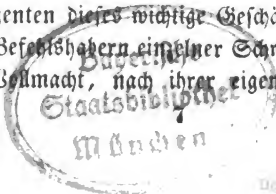 zenten dieses wichtige Geschi
Befehlshabern einzelner Schr
Vollmacht, nach ihrer eigen
Bayerische
Staatsbibliothek
München